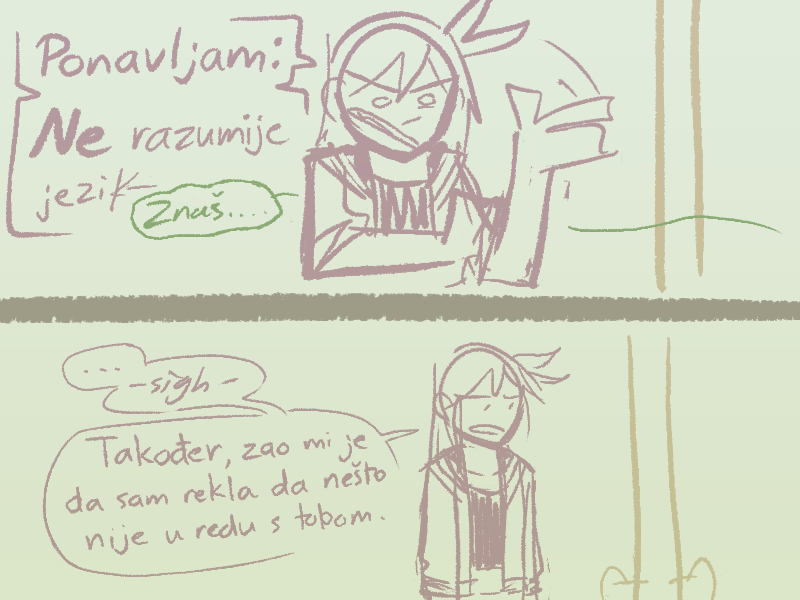 Ponavljam:
Ne razumije
jezik—
Znaš....
...
-sigh-
Također, zao mi je
da sam rekla da nešto
nije u redu s tobom.